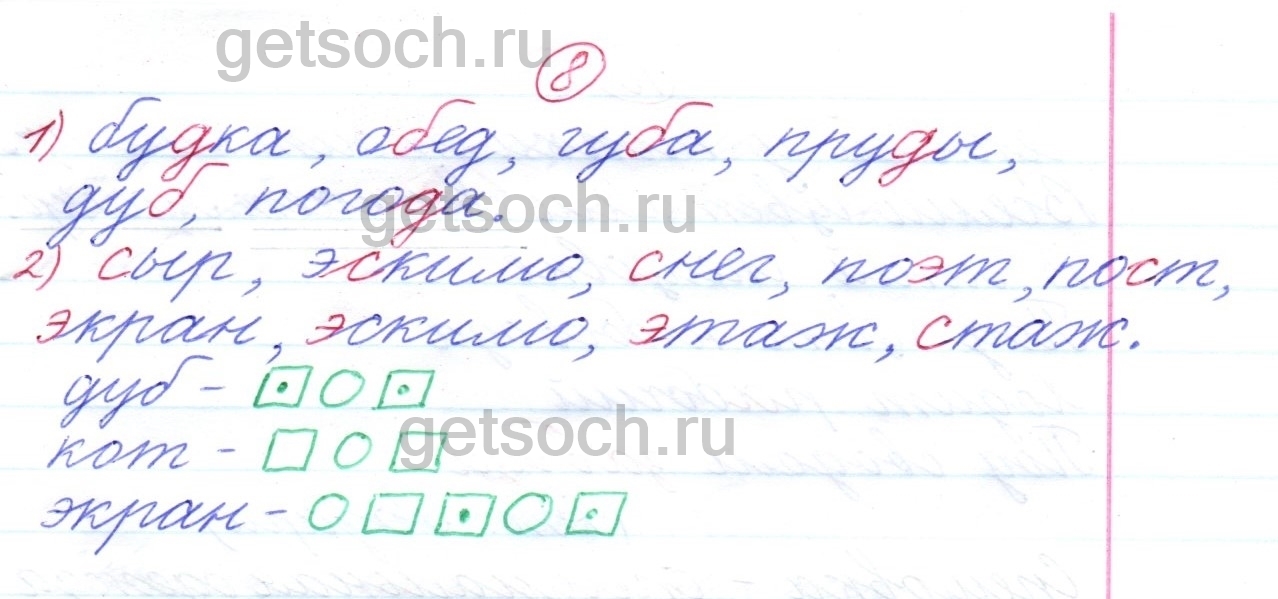 getsoch.ru
8
1) будка, обед, губа, пруды,
дуб, погода.
getsoch.ru
2) сыр, эскимо, снег, поэт, пост,
экран, эскимо, этаж, стаж.
дуб -
getsoch.ru
кот -
экран -